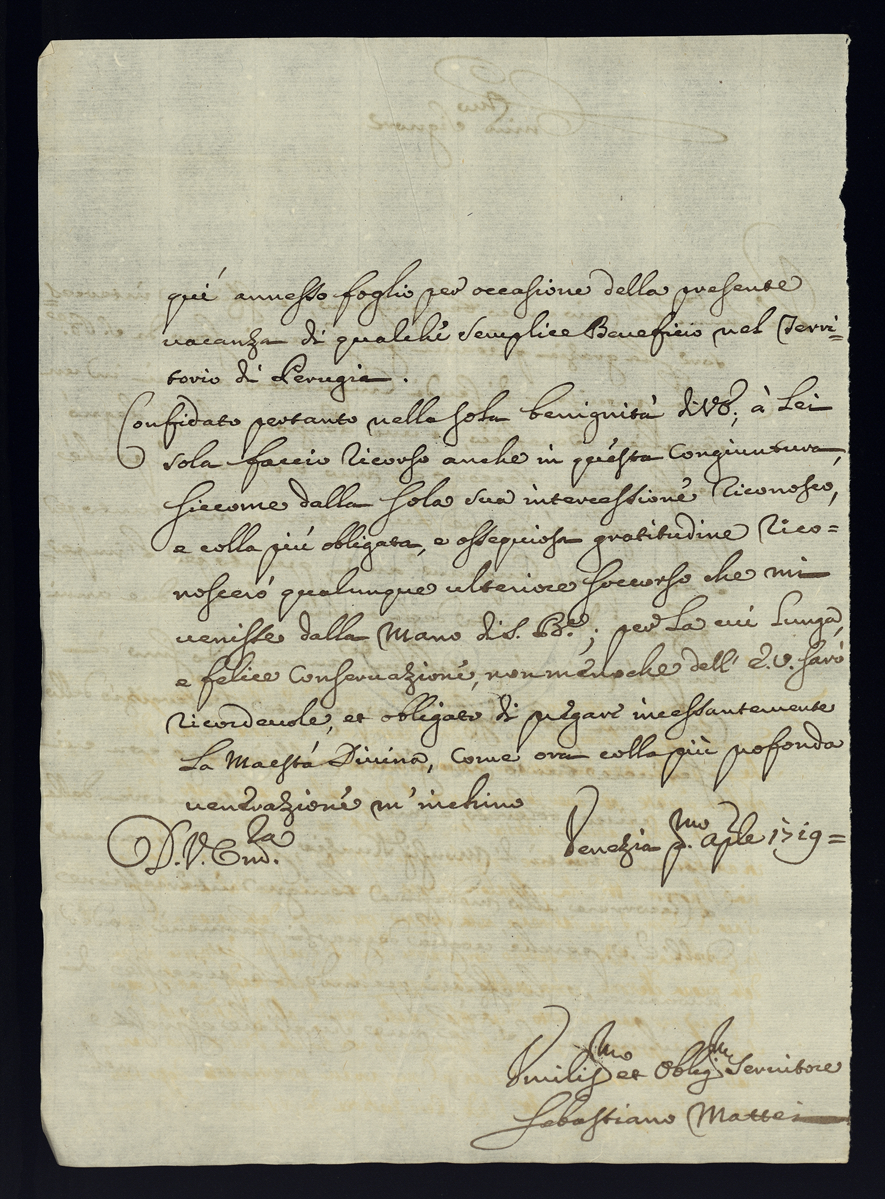 qui annesso foglio per occasione della presente
vacanza di qualche semplice Beneficio nel Terri=
torio di Perugia.
Confidato pertanto nella sola benignità di V.; à Lei
sola faccio ricorso anche in questa congiuntura,
siccome dalla sola sua intercessione riconosco,
e colla più obligata, e ossequiosa gratitudine rico=
noscerò qualunque ulteriore soccorso che mi
venisse dalla Mano di S. B.ne; per la cui lunga,
e felice conservazione, non meno che dell' E.V. sarò
ricordevole, et obligato di pregare incessantemente
La Maestà Divina, come ora colla più profonda
venerazione m'inchino
D. V. Em.za
Venezia p.mo Aple 1719=
Umiliss.mo et Oblig.mo Servitore
Sebastiano Mattei